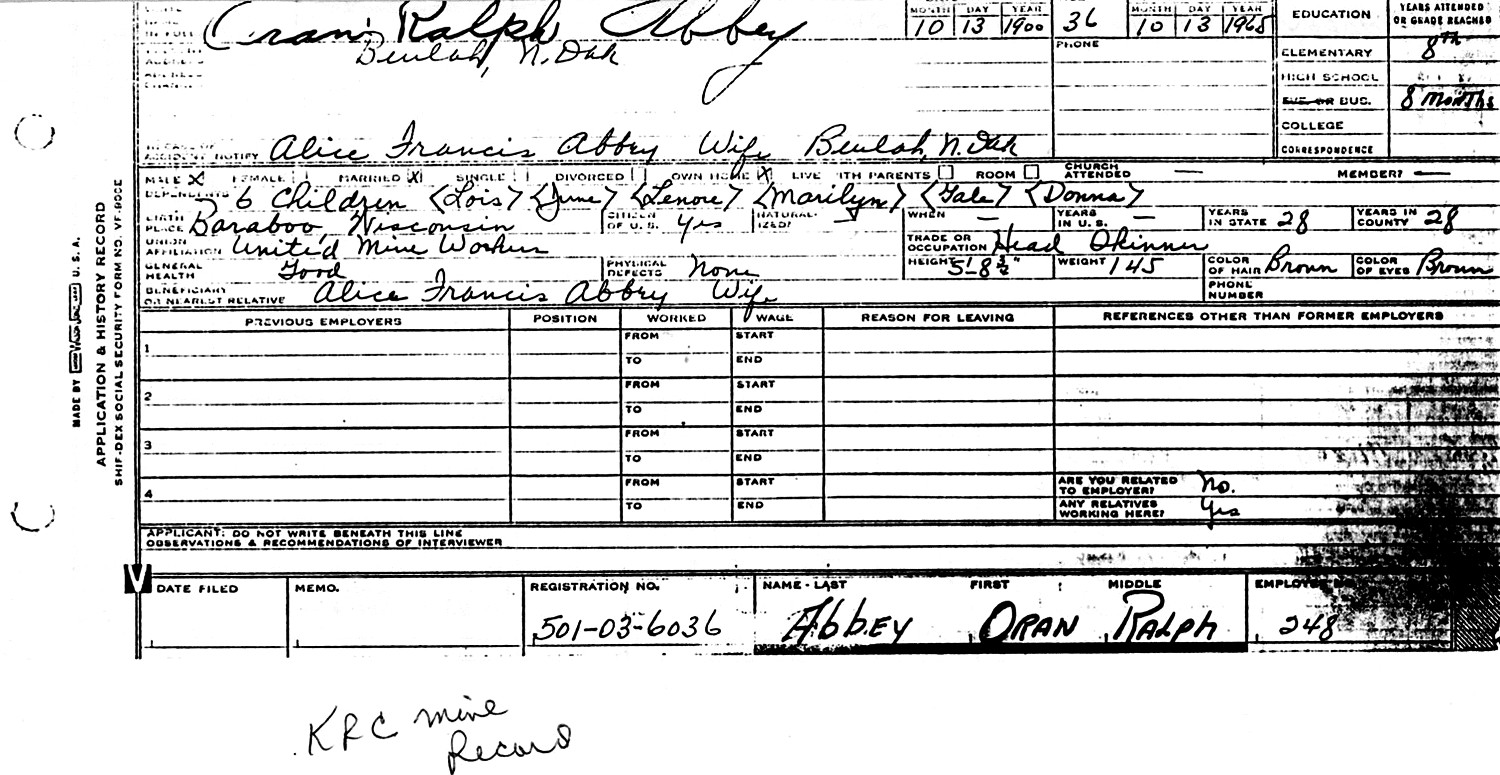 Oran Ralph Abbey
IN FULL
MONTH DAY YEAR
10 13 1900
36
MONTH DAY YEAR
10 13 1965
EDUCATION
YEARS ATTENDED
OR GRADE REACHED
Beulah, N. Dak
PHONE
ELEMENTARY 8th
HIGH SCHOOL
EVE. OR BUS. 8 Months
COLLEGE
ACCIDENT NOTIFY Alice Francis Abbey Wife Beulah, N. Dak
CORRESPONDENCE
MALE X FEMALE MARRIED X SINGLE DIVORCED OWN HOME X LIVE WITH PARENTS ROOM CHURCH ATTENDED — MEMBER? —
DEPENDENTS 6 Children <Lois> <June> <Lenore> <Marilyn> <Gale> <Donna>
BIRTH PLACE Baraboo, Wisconsin CITIZEN OF U. S. Yes NATURAL-IZED? WHEN — YEARS IN U. S. — YEARS IN STATE 28 YEARS IN COUNTY 28
UNION AFFILIATION United Mine Workers TRADE OR OCCUPATION Head Skinner
GENERAL HEALTH Good PHYSICAL DEFECTS None HEIGHT 5'-8 ½" WEIGHT 145 COLOR OF HAIR Brown COLOR OF EYES Brown
BENEFICIARY OR NEAREST RELATIVE Alice Francis Abbey Wife PHONE NUMBER
PREVIOUS EMPLOYERS POSITION WORKED WAGE REASON FOR LEAVING REFERENCES OTHER THAN FORMER EMPLOYERS
1 FROM START
TO END
2 FROM START
TO END
3 FROM START
TO END
4 FROM START ARE YOU RELATED TO EMPLOYER? No.
TO END ANY RELATIVES WORKING HERE? Yes
APPLICANT: DO NOT WRITE BENEATH THIS LINE
OBSERVATIONS & RECOMMENDATIONS OF INTERVIEWER
V DATE FILED MEMO. REGISTRATION NO. NAME - LAST FIRST MIDDLE
501-03-6036 Abbey Oran Ralph 248
MADE BY U. S. A.
APPLICATION & HISTORY RECORD
SHIF-DEX SOCIAL SECURITY FORM NO. VF-90CE
KRC mine
Record